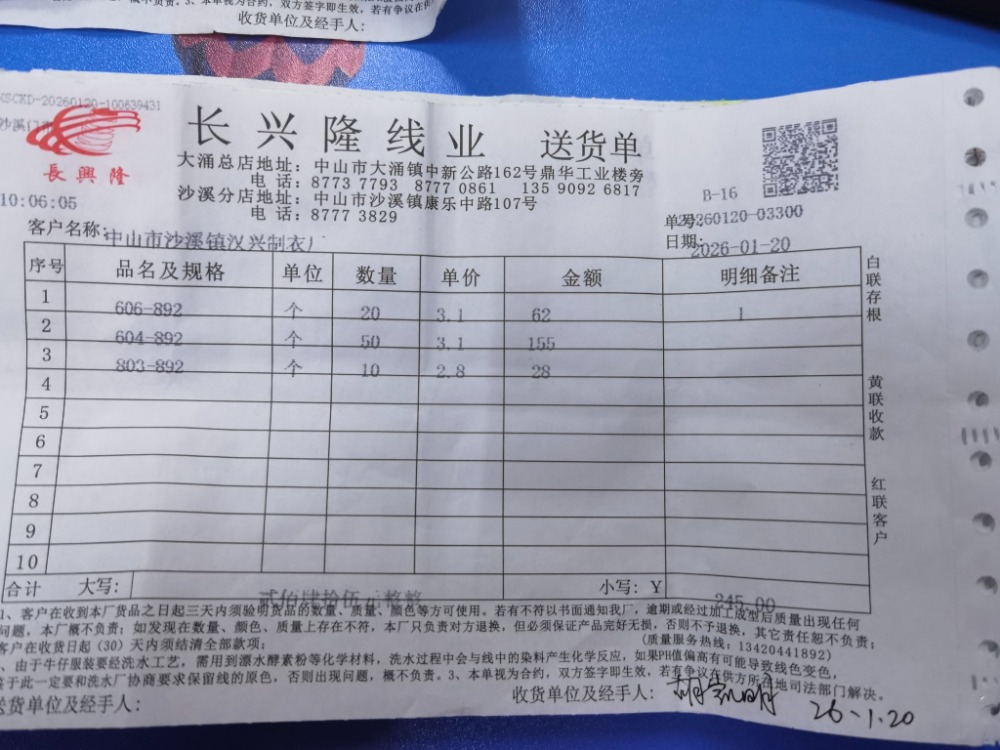 收货单位及经手人：
KSCKD-20260120-100639431
沙溪门
長興隆
长兴隆线业 送货单
大涌总店地址：中山市大涌镇中新公路162号鼎华工业楼旁
电话：8773 7793 8777 0861 135 9092 6817
沙溪分店地址：中山市沙溪镇康乐中路107号
电话：8777 3829
10:06:05
B-16
单号：20260120-03300
客户名称：中山市沙溪镇汉兴制衣厂
日期：2026-01-20
序号 品名及规格 单位 数量 单价 金额 明细备注
1 606-892 个 20 3.1 62 1
2 604-892 个 50 3.1 155
3 803-892 个 10 2.8 28
4
5
6
7
8
9
10
合计 大写：贰佰肆拾伍元整整 小写：Y 245.00
白联存根
黄联收款
红联客户
1、客户在收到本厂货品之日起三天内须验明货品的数量、质量、颜色等方可使用。若有不符以书面通知我厂，逾期或经过加工成型后质量出现任何
问题，本厂概不负责；如发现在数量、颜色、质量上存在不符，本厂只负责对方退换，但必须保证产品完好无损，否则不予退换，其它责任恕不负责；
客户在收货日起（30）天内须结清全部款项； （质量服务热线：13420441892）
、由于牛仔服装要经洗水工艺，需用到漂水酵素粉等化学材料，洗水过程中会与线中的染料产生化学反应，如果PH值偏高有可能导致线色变色，
鉴于此一定要和洗水厂协商要求保留线的原色，否则出现问题，概不负责。3、本单视为合约，双方签字即生效，若有争议在供方所在地司法部门解决。
送货单位及经手人：
收货单位及经手人：
26-1.20